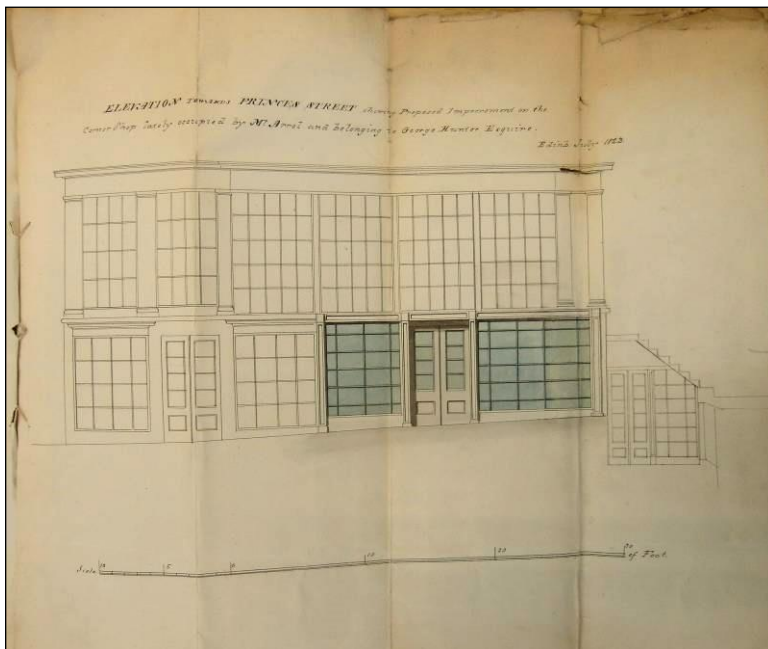 ELEVATION TOWARDS PRINCES STREET shewing Proposed Improvement on the
Corner Shop lately occupied by Mr Arrol and belonging to George Hunter Esquire.
Edinb July 1823
Scale 10 5 0 10 20 30 of Feet.